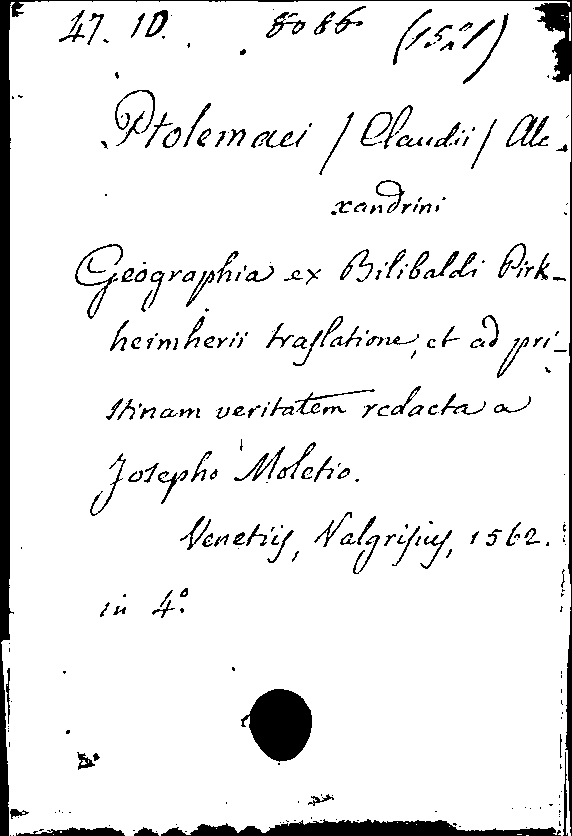 47. 10. 8086
Ptolemaei / Claudii / Ale-
xandrini
Geographia ex Bilibaldi Pirk-
heimherii traslatione, et ad pri-
stinam veritatem redacta a
Josepho Moletio.
Venetiis, Valgrisius, 1562.
in 4°.